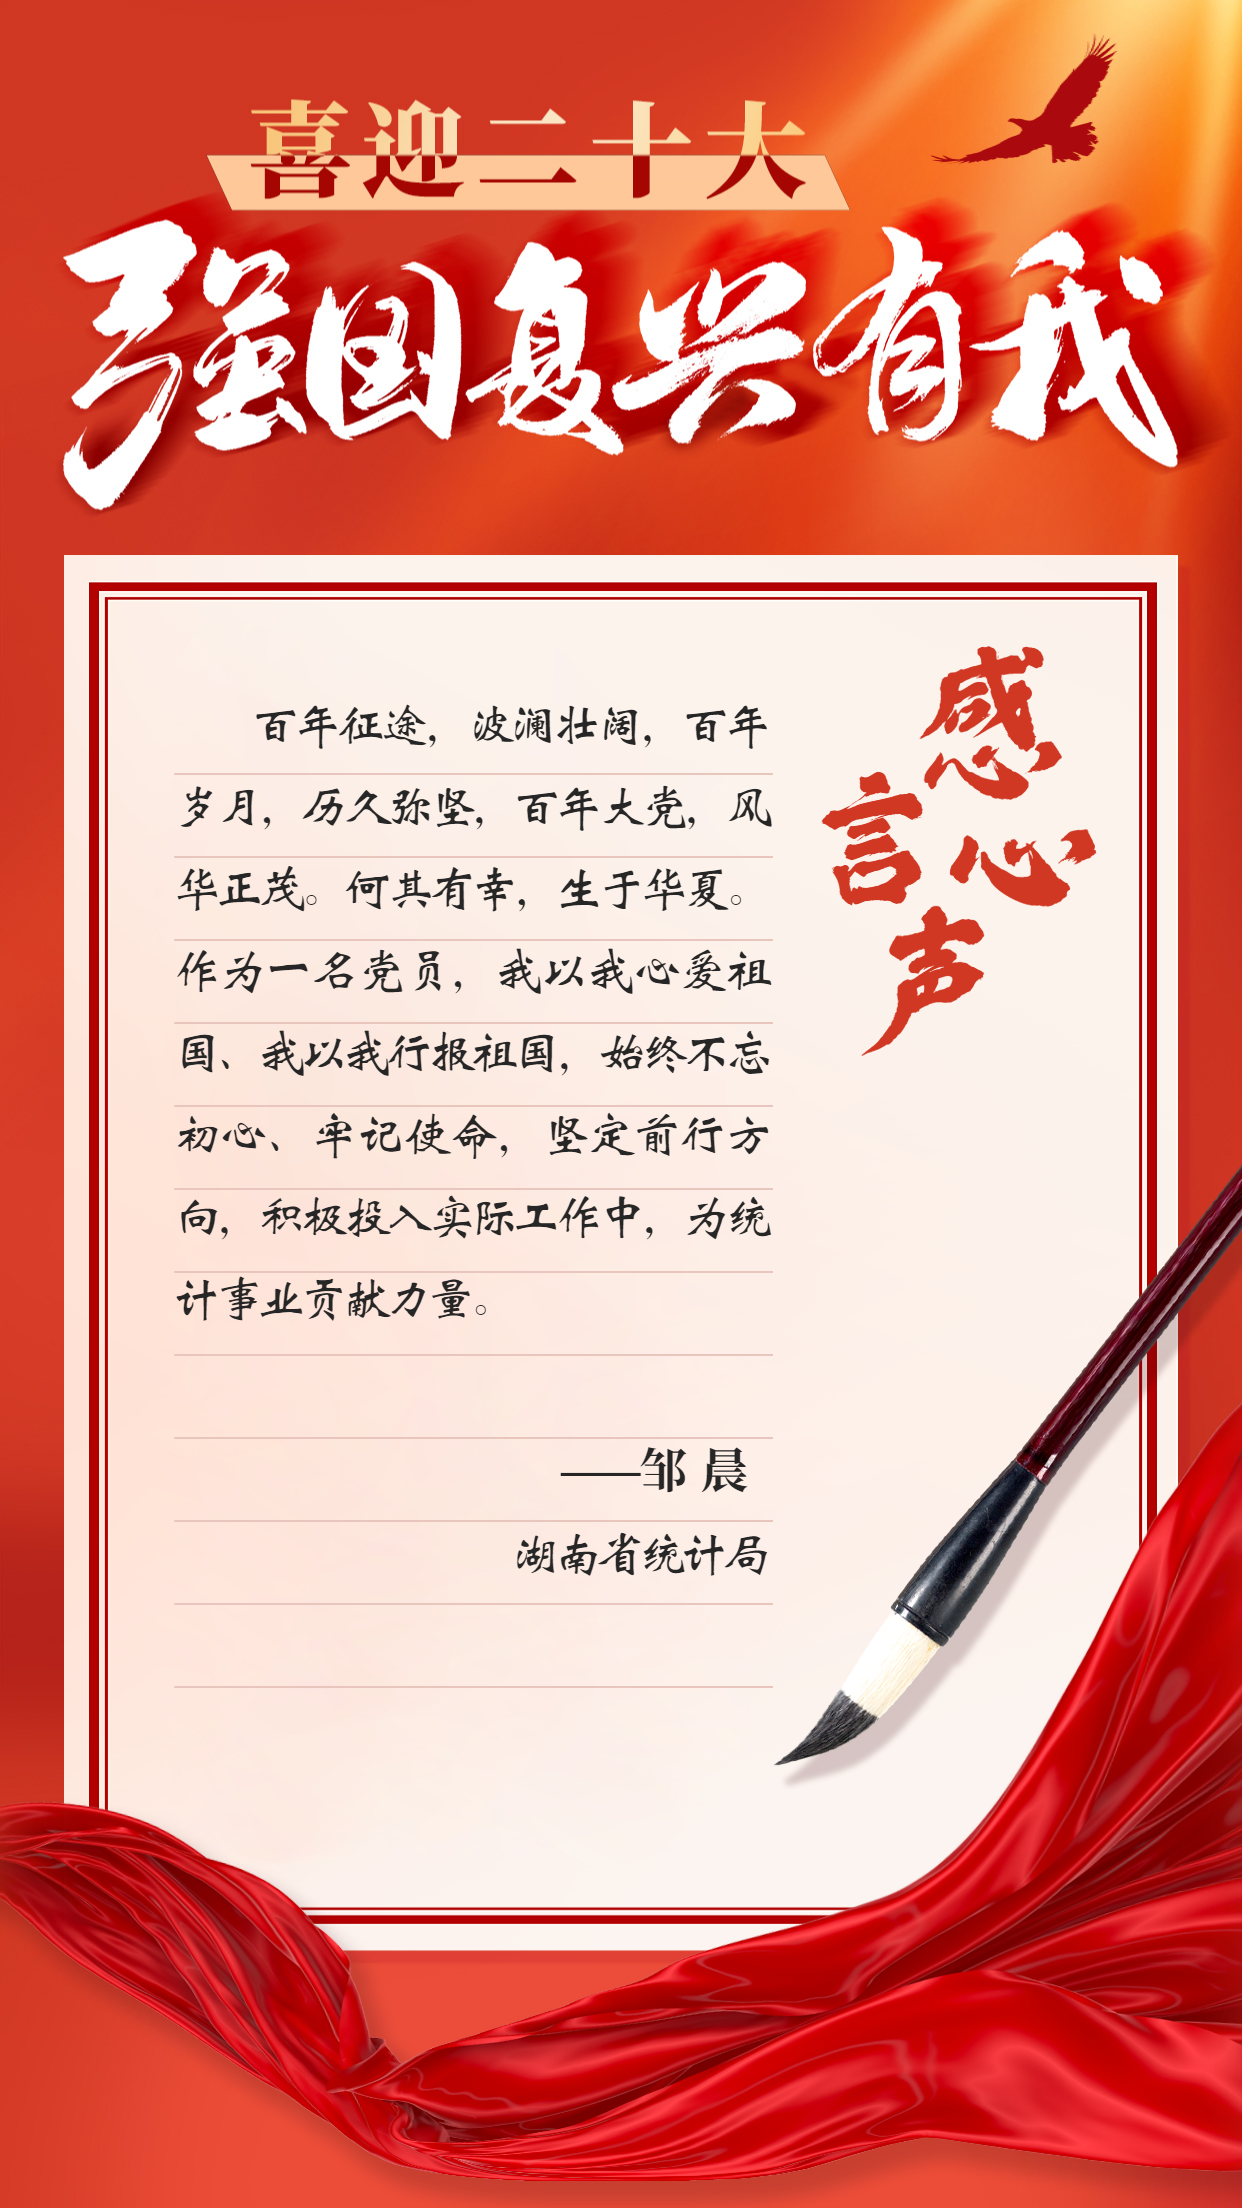 喜迎二十大
强国复兴有我
感言心声
百年征途，波澜壮阔，百年
岁月，历久弥坚，百年大党，风
华正茂。何其有幸，生于华夏。
作为一名党员，我以我心爱祖
国、我以我行报祖国，始终不忘
初心、牢记使命，坚定前行方
向，积极投入实际工作中，为统
计事业贡献力量。
——邹 晨
湖南省统计局